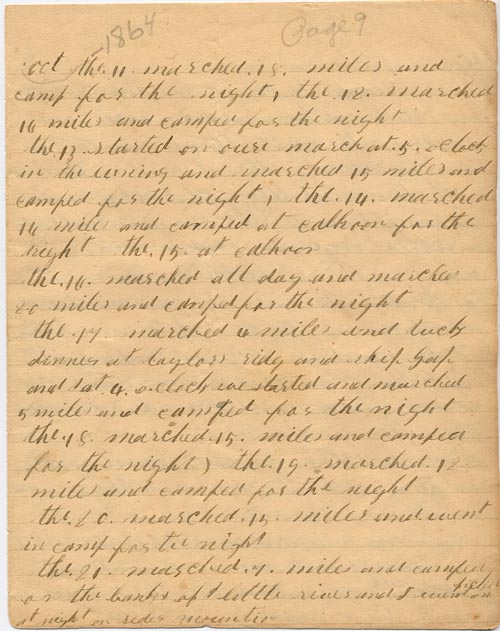 1864 Page 9
oct the 11. marched 15. miles and
camp for the night, the 12. marched
16 miles and camped for the night
the 13 started on oure march at 5. oclock
in the evning and marched 15 miles and
camped for the night, the 14. marched
16 miles and camped at calhoon for the
night the 15. at calhoon
the 16. marched all day and marched
20 miles and camped for the night
the 17. marched 4 miles and tuck
dinner at taylors ridg and ship gap
and at 4. oclock we started and marched
5 miles and camped for the night
the 18. marched 15. miles and camped
for the night) the 19. marched. 12
miles and camped for the night
the 20. marched. 15. miles and went
in camp for the night
the 21. marched. 7. miles and camped
on the banks of little river and I went on picket
at night on mountin